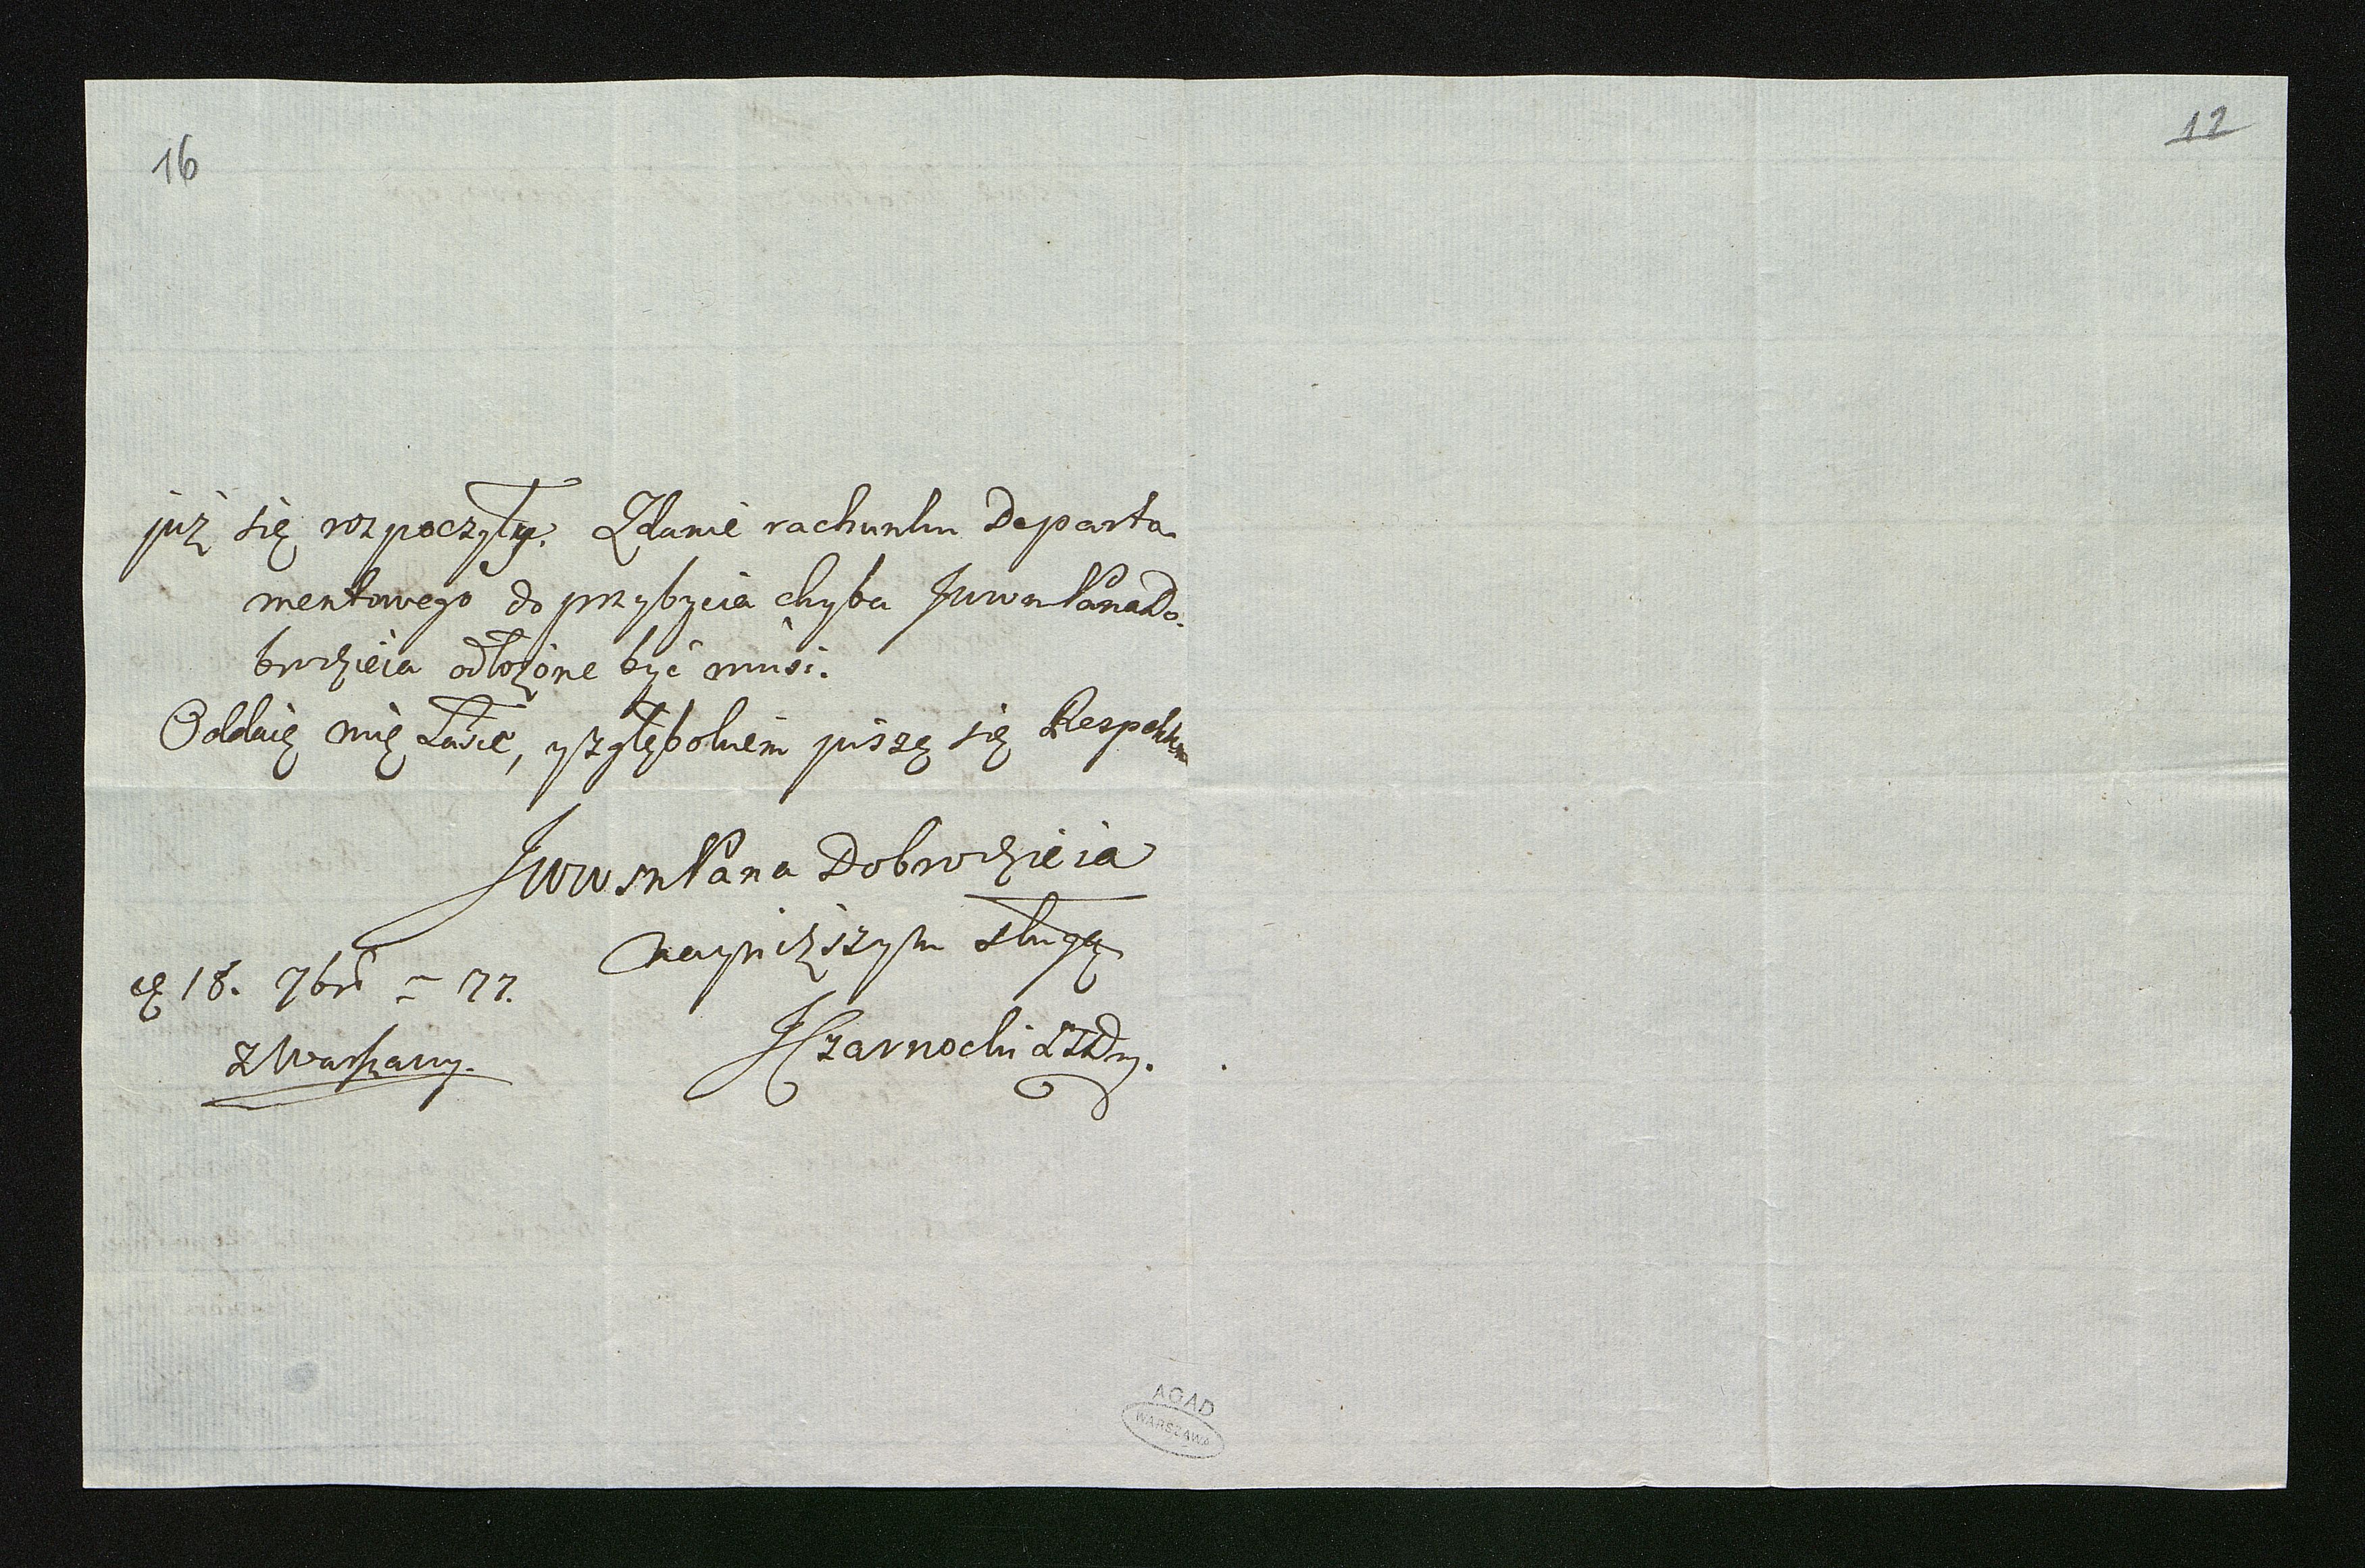 16
12
już się rozpoczęły. Zdanie rachunku Departa-
mentowego do przybycia chyba JWWm Pana Do-
brodzieia odłożone być musi.
Oddaię mię Łasce, y z głębokiem piszę się Respektem
JWWMPana Dobrodzieia
nayniższym sługą
JCzarnocki
18. 7bra 77.
z Warszawy.
AGAD
WARSZAWA